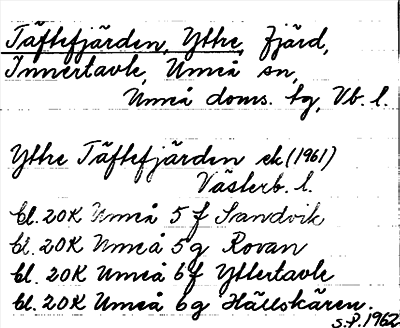 Täftefjärden, Yttre, fjärd,
Innertavle, Umeå sn,
Umeå doms. tg, Vb. l.
Yttre Täftefjärden ek (1961)
Västerb. l.
bl. 20K Umeå 5f Sandvik
bl. 20K Umeå 5g Rovan
bl. 20K Umeå 6f Yttertavle
bl. 20K Umeå 6g Hällskären.
S.P. 1962